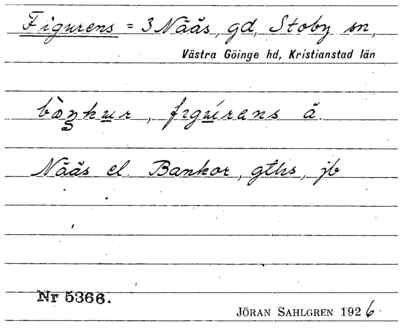 Figurens = 3 Nääs, gd, Stoby sn,
Västra Göinge hd, Kristianstad län
bàŋkur, figúrans å.
Nääs el. Bankor, gths, jb
Nr 5366.
JÖRAN SAHLGREN 1926